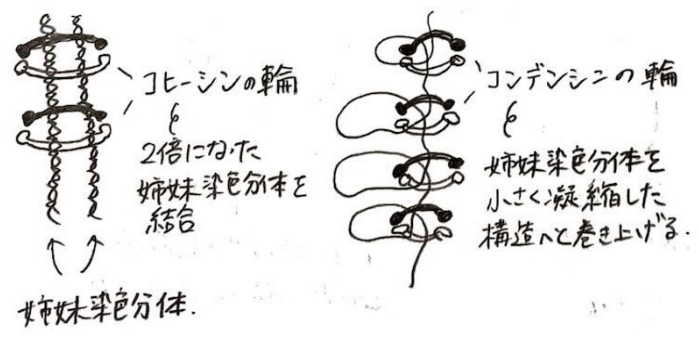 コヒーシンの輪
2倍になった
姉妹染色分体を
結合
姉妹染色分体.
コンデンシンの輪
姉妹染色分体を
小さく凝縮した
構造へと巻き上げる.